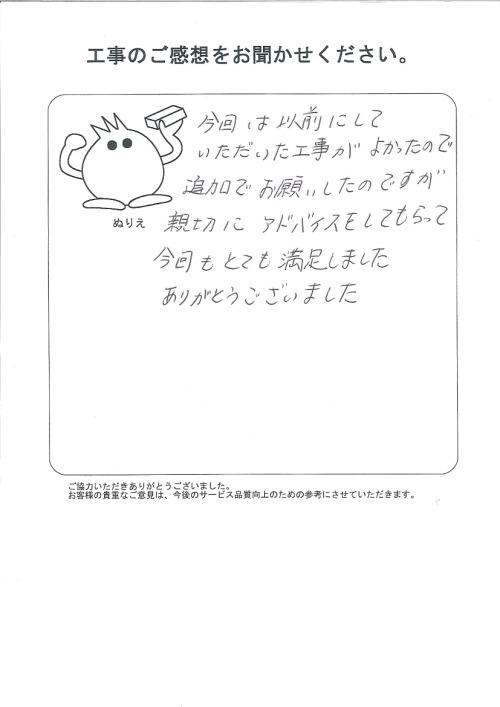 工事のご感想をお聞かせください。
今回は以前にして
いただいた工事がよかったので
追加でお願いしたのですが
ぬりえ
親切にアドバイスをしてもらって
今回もとても満足しました
ありがとうございました
ご協力いただきありがとうございました。
お客様の貴重なご意見は、今後のサービス品質向上のための参考にさせていただきます。